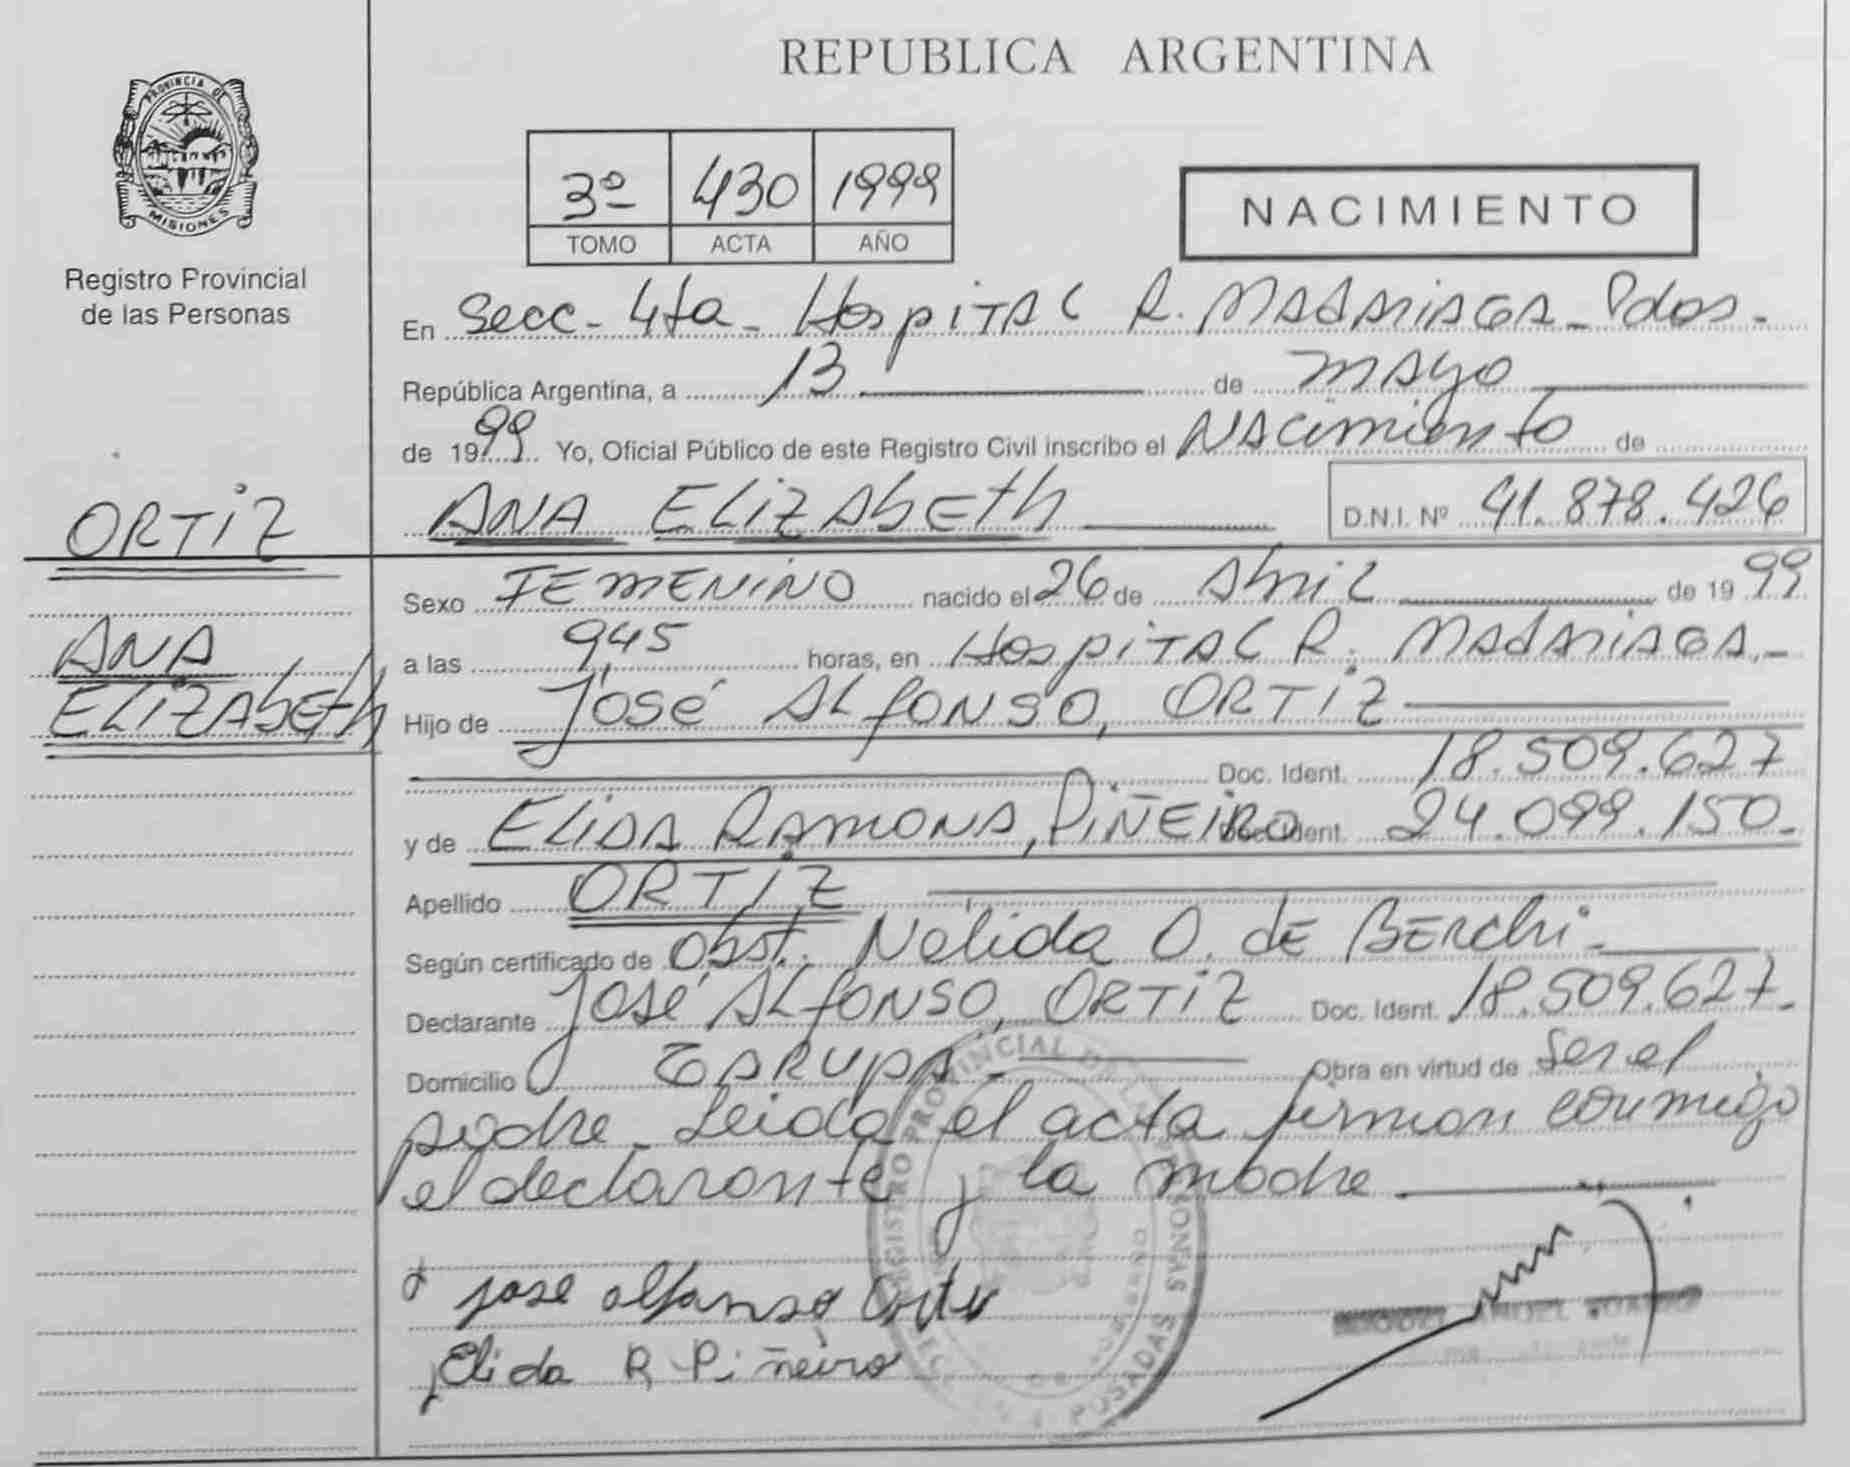 REPUBLICA ARGENTINA
PROVINCIA DE
MISIONES
Registro Provincial
de las Personas
3º 430 1999
TOMO ACTA AÑO
NACIMIENTO
En Secc- 4ta- Hospital R. Madariaga- Pdas.
República Argentina, a 13 de mayo
de 1999 Yo, Oficial Público de este Registro Civil inscribo el Nacimiento de
ANA ELIZAbETh D.N.I. Nº 41.878.426
ORTIZ
ANA
ELIZAbETh
Sexo FEMENINO nacido el 26 de Abril de 1999
a las 9,45 horas, en Hospital R. Madariaga.-
Hijo de José Alfonso, ORTIZ
Doc. Ident. 18.509.627
y de Elida Ramona, Piñeiro Doc. Ident. 24.099.150.
Apellido ORTIZ
Según certificado de Obst. Nélida O. de Berchi-
Declarante José Alfonso, ORTIZ Doc. Ident. 18.509.627.
Domicilio Garupá- Obra en virtud de Ser el
padre- Leida el acta firman conmigo
el declarante y la madre
jose alfonso Ortiz
Elida R Piñeiro
REGISTRO PROVINCIAL DE LAS PERSONAS
POSADAS